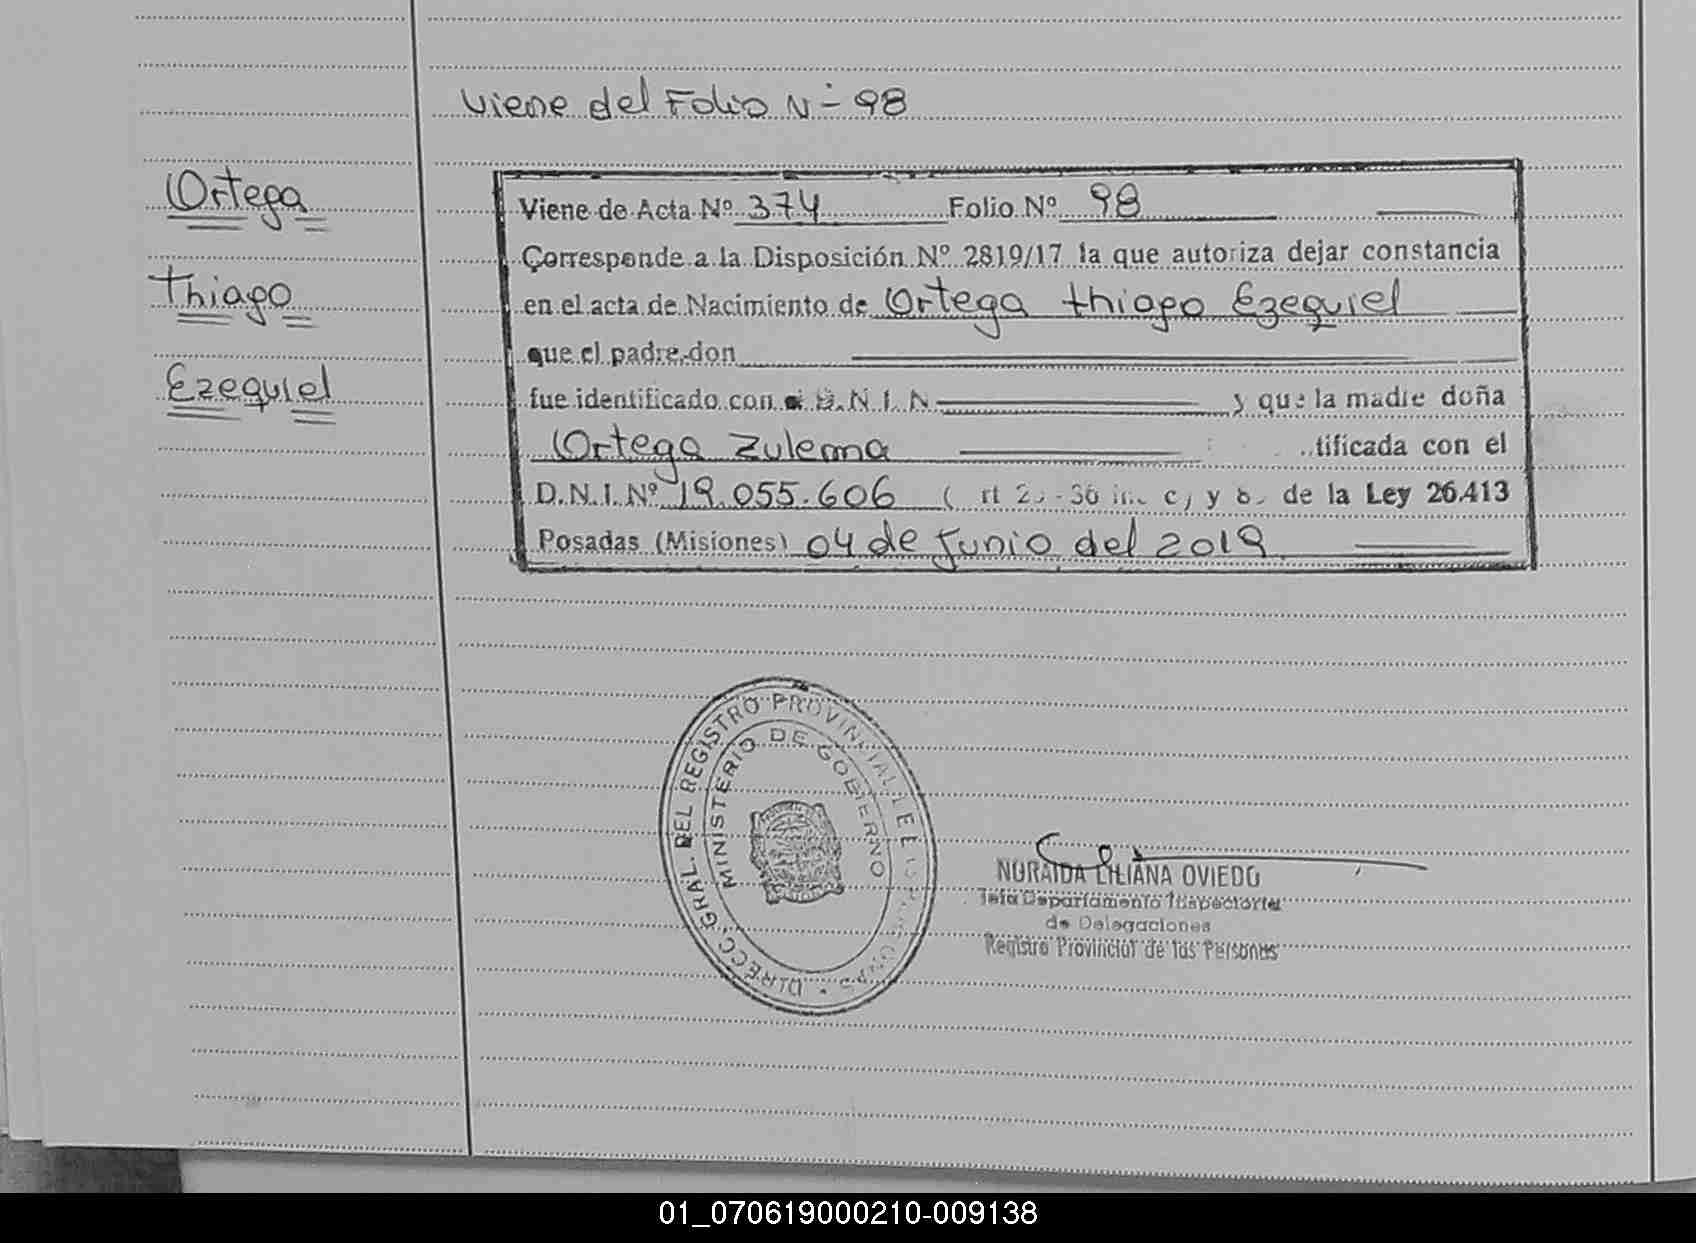 Viene del Folio N- 98
Ortega
Thiago
Ezequiel
Viene de Acta Nº 374 Folio Nº 98
Corresponde a la Disposición Nº 2819/17 la que autoriza dejar constancia
en el acta de Nacimiento de Ortega Thiago Ezequiel
que el padre don
fue identificado con D.N.I. N y que la madre doña
Ortega Zulema tificada con el
D.N.I. Nº 19.055.606 ( rt y de la Ley 26.413
Posadas (Misiones) 04 de Junio del 2019
DIRECC. GRAL. DEL REGISTRO PROVINCIAL DE
MINISTERIO DE GOBIERNO
NORAIDA LILIANA OVIEDO
Jefa Departamento Inspectoria
de Delegaciones
Registro Provincial de las Personas
01_070619000210-009138